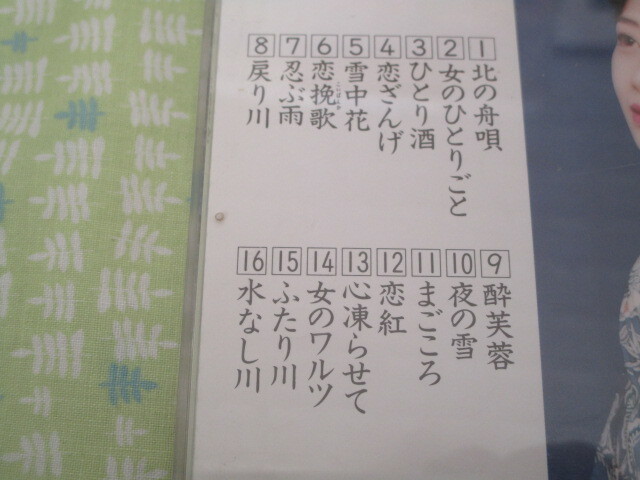 1 北の舟唄
2 女のひとりごと
3 ひとり酒
4 恋ざんげ
5 雪中花
6 恋挽歌
7 忍ぶ雨
8 戻り川
9 酔芙蓉
10 夜の雪
11 まごころ
12 恋紅
13 心凍らせて
14 女のワルツ
15 ふたり川
16 水なし川